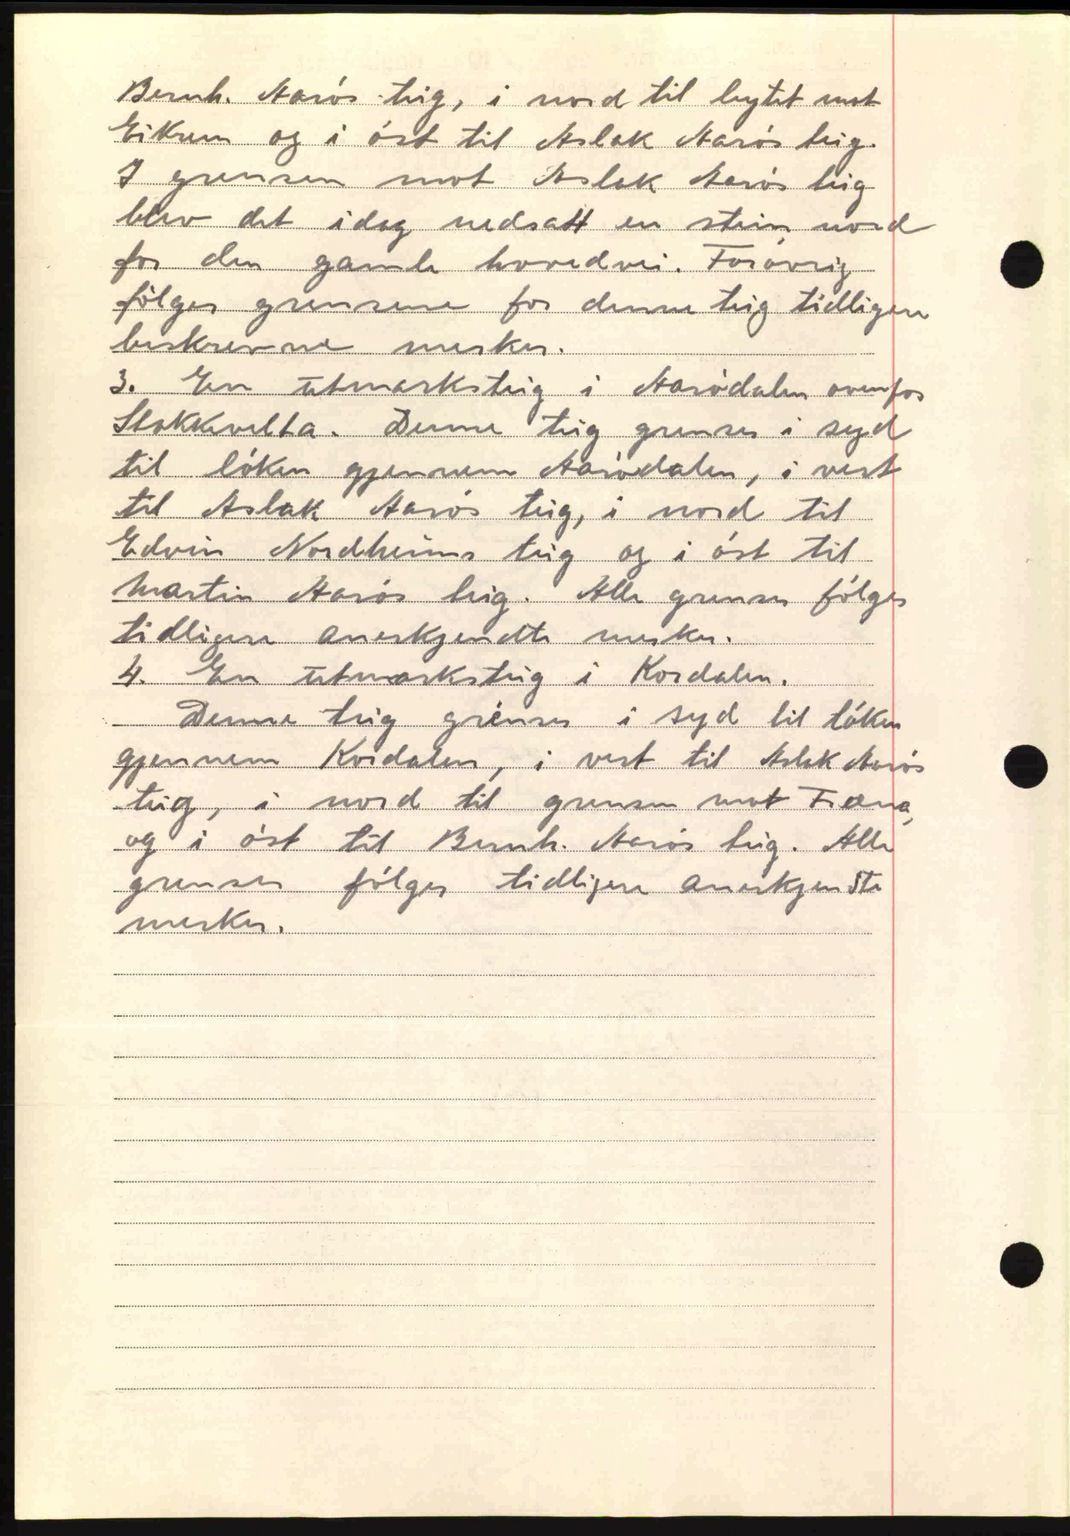 Bernh. Aarös teig, i nord til bytet mot
Eikrem og i öst til Aslak Aarös teig.
I grensen mot Aslak Aarös teig
blev det idag nedsatt en stein nord
for den gamle hovedvei. Forövrig
fölges grensene for denne teig tidligere
beskrevne merker.
3. En utmarksteig i Aarödalen ovenfor
Stokkvelta. Denne teig grenser i syd
til löken gjennem Aarödalen, i vest
til Aslak Aarös teig, i nord til
Edvin Nordheims teig og i öst til
Martin Aarös teig. Alle grenser fölges
tidligere anerkjendte merker.
4. En utmarksteig i Kordalen.
Denne teig grenser i syd til löken
gjennem Kordalen, i vest til Aslak Aarös
teig, i nord til grensen mot Fræna,
og i öst til Bernh. Aarös teig. Alle
grenser fölges tidligere anerkjendte
merker.